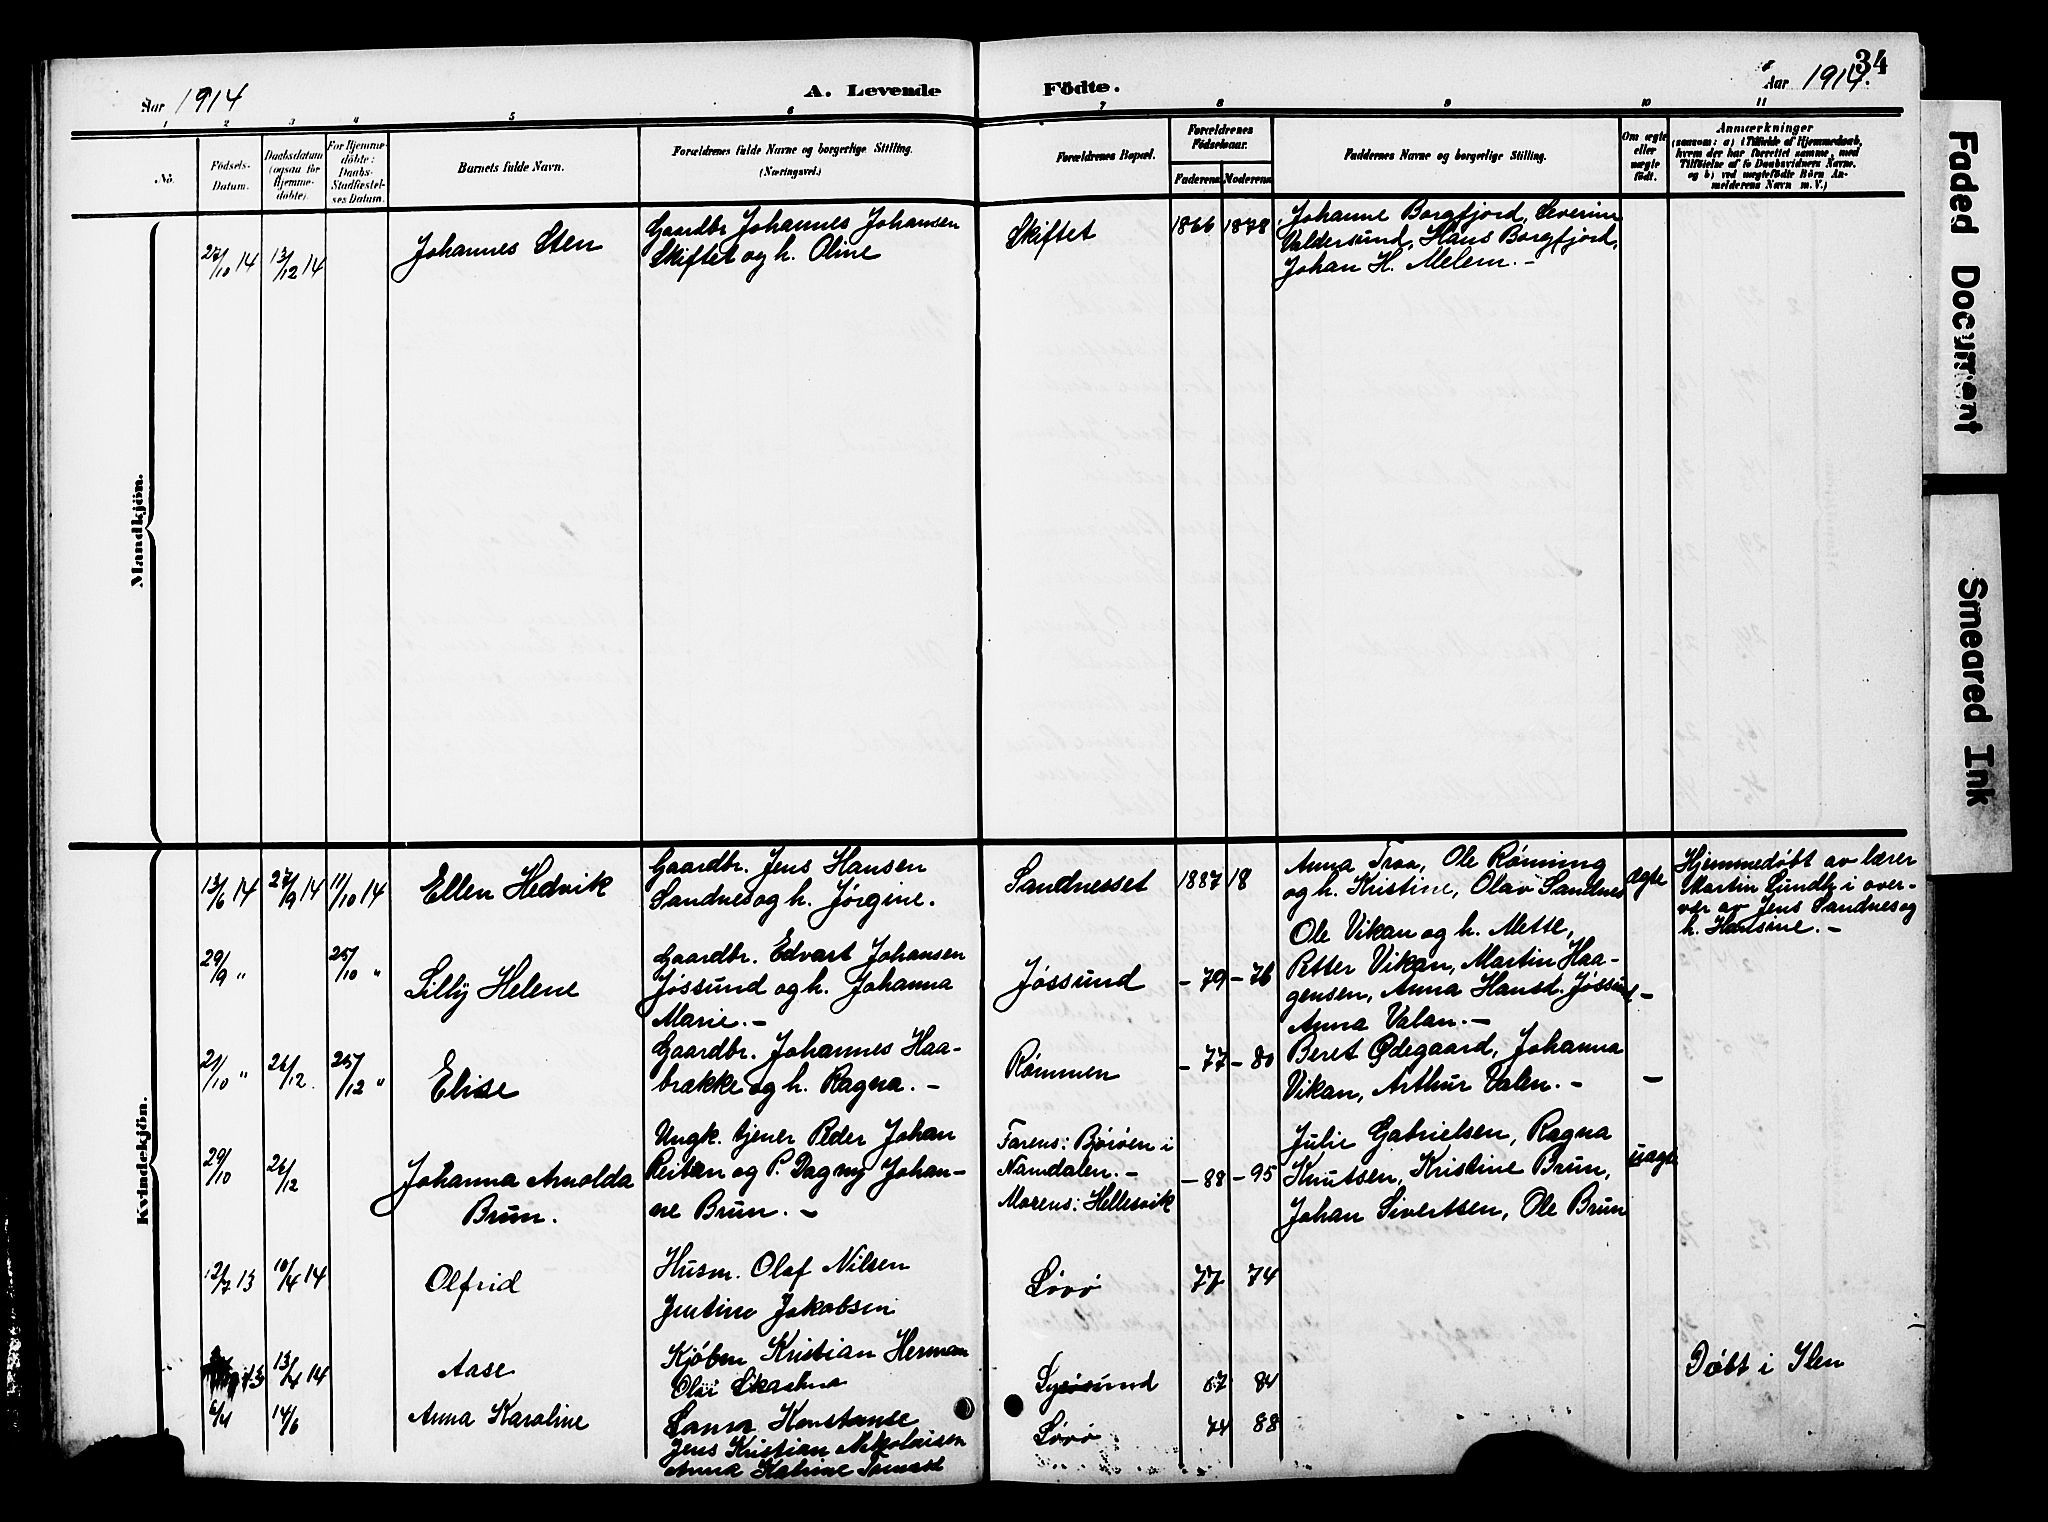 34
Aar 1914
A. Levende Födte.
Aar 1914.
1 2 3 4 5 6 7 8 9 10 11
No.
Födsels-
Datum.
Daabsdatum
(ogsaa for
Hjemme-
døbte).
For Hjemme-
döbte:
Daabs-
Stadfæstel-
ses Datum.
Barnets fulde Navn.
Forældrenes fulde Navne og borgerlige Stilling.
(Næringsvei.)
Forældrenes Bopæl.
Forældrenes
Födselsaar.
Faderens Moderens
Faddernes Navne og borgerlige Stilling.
Om ægte
eller
uægte
født.
Anmærkninger
(saasom: a) i Tilfælde af Hjemmedaab,
hvem der har forrettet samme, med
Tilföielse af to Daabsvidners Navne,
og b) ved uægtefödte Börn An-
melderens Navn m. V.)
Mandkjön.
27/10 14 13/12 14
Johannes Sten
Gaardbr Johannes Johansen
Skiftet og h. Oline
Skiftet
1866 1878
Johanne Borgfjord, Severin
Valdersund, Hans Borgfjord,
Johan H. Melem. –
Kvindekjön.
13/6 14 27/9 14 11/10 14
Ellen Hedvik
Gaardbr. Jens Hansen
Sandnes og h. Jørgine.
Sandnesset
1887 18
Anna Traa, Ole Rønning
og h. Kristine, Olav Sandnes
ægte
Hjemmedøbt av lærer
Martin Sundby i over-
vær av Jens Sandnes og
h. Hansine. –
29/9 " 25/10 "
Lilly Helene
Gaardbr. Edvart Johansen
Jøssund og h. Johanna
Marie. –
Jøssund
– 79 – 76
Ole Vikan og h. Mette,
Petter Vikan, Martin Haa-
gensen, Anna Hansd. Jøssund
Anna Valan. –
–
21/10 " 26/12. 25/12 "
Elise
Gaardbr. Johannes Haa-
brække og h. Ragna. –
Rømmen
– 77 – 80
Beret Ødegaard, Johanna
Vikan, Arthur Valen. –
–
29/10 26/12
Johanna Arnolda
Brun.
Ungk. tjener Peder Johan
Reitan og P. Dagny Johan-
ne Brun. –
Farens: Bjørøen i
Namdalen. –
Morens: Hellesvik
– 88 – 95
Julie Gabrielsen, Ragna
Knutsen, Kristine Brun,
Johan Sivertsen, Ole Brun
uægte
12/7 13 10/4 14
Olfrid
Husm. Olaf Nilsen
Jentine Jakobsen
Løvø
77 74
13 13/4 14
Aase
Kjøbm. Kristian Herman
Olai
Lysøsund
67 84
Døbt i Ilen
6/4 14/6
Anna Karoline
Konstanse
Jens Kristian Nikolaisen
Anna Katrine
Løvø
74 88
Faded Document
Smeared Ink